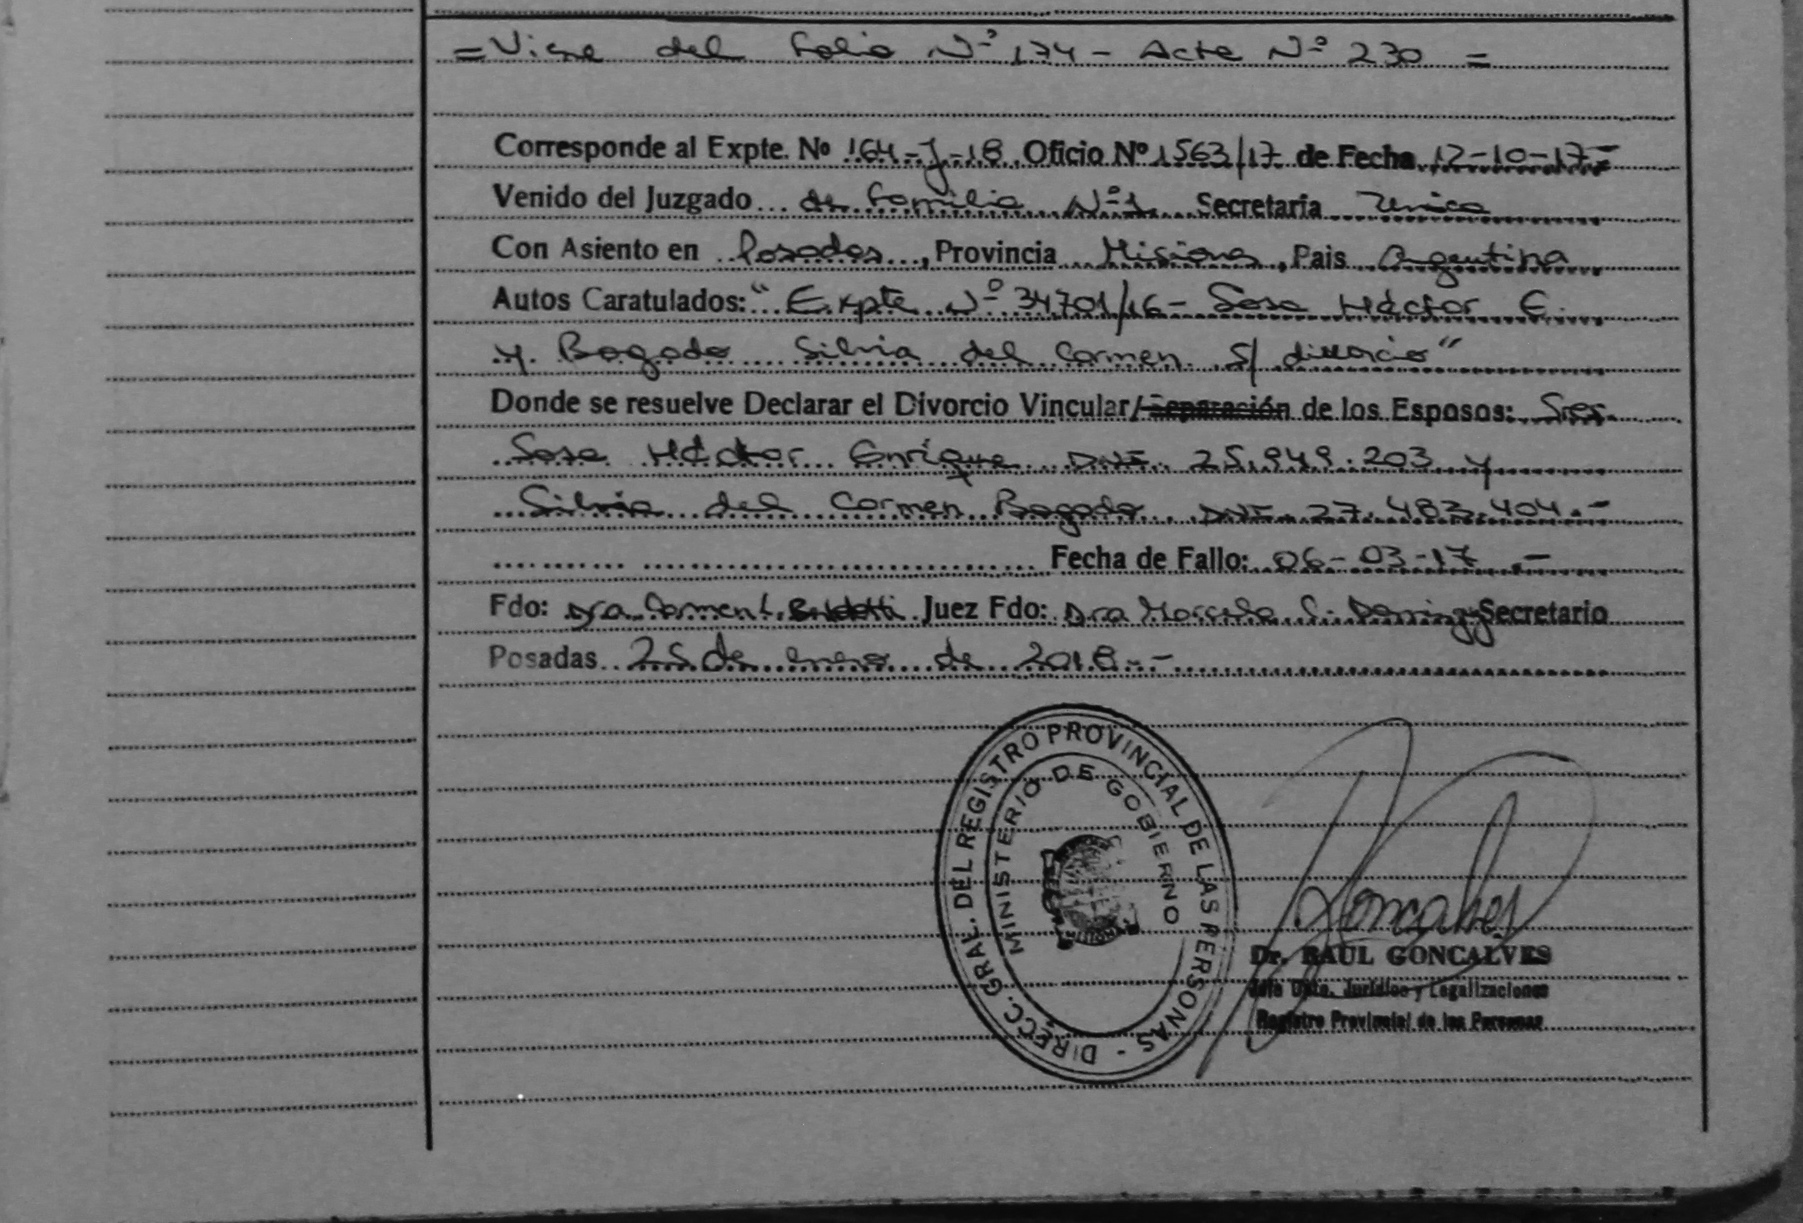 = Viene del Folio Nº 174 - Acta Nº 230 =
Corresponde al Expte. Nº 164-J-18 Oficio Nº 1563/17 de Fecha 12-10-17.-
Venido del Juzgado de Familia Nº 1 Secretaría Unica
Con Asiento en Posadas, Provincia Misiones, Pais Argentina
Autos Caratulados: "Expte Nº 34701/16 - Sosa Héctor E.
y Bogado Silvia del Carmen S/ divorcio"
Donde se resuelve Declarar el Divorcio Vincular/Separación de los Esposos: Sres.
Sosa Héctor Enrique DNI. 25.949.203 y
Silvia del Carmen Bogado DNI. 27.483.404.-
Fecha de Fallo: 06-03-17.-
Fdo: Dra. Carmen Juez Fdo: Dra Marcela Secretario
Posadas 25 de enero de 2018.-
DIRECC. GRAL. DEL REGISTRO PROVINCIAL DE LAS PERSONAS -
MINISTERIO DE GOBIERNO
Goncalves
Dr. RAUL GONCALVES
Jefe Dpto. Jurídico y Legalizaciones
Registro Provincial de las Personas